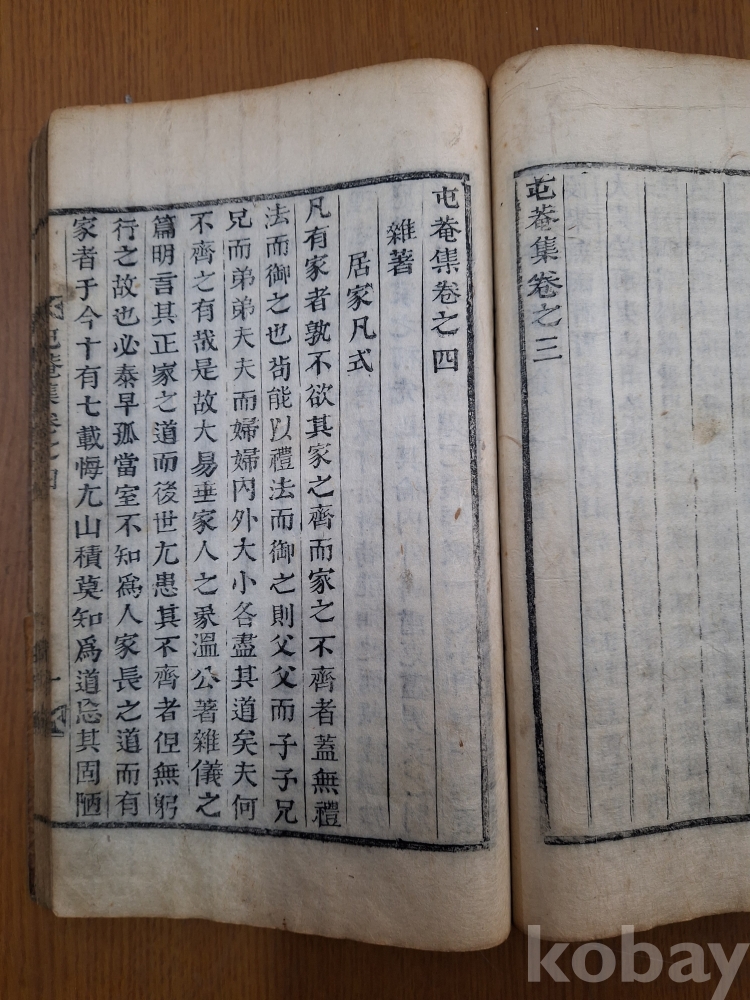 屯菴集卷之三
屯菴集卷之四
雜著
居家凡式
凡有家者孰不欲其家之齊而家之不齊者蓋無禮
法而御之也茍能以禮法而御之則父父而子子兄
兄而弟弟夫夫而婦婦內外大小各盡其道矣夫何
不齊之有哉是故大易垂家人之彖溫公著雜儀之
篇明言其正家之道而後世尤患其不齊者但無躬
行之故也必泰早孤當室不知爲人家長之道而有
家者于今十有七載悔尤山積莫知爲道忘其固陋
屯菴集卷之四
一
kobay